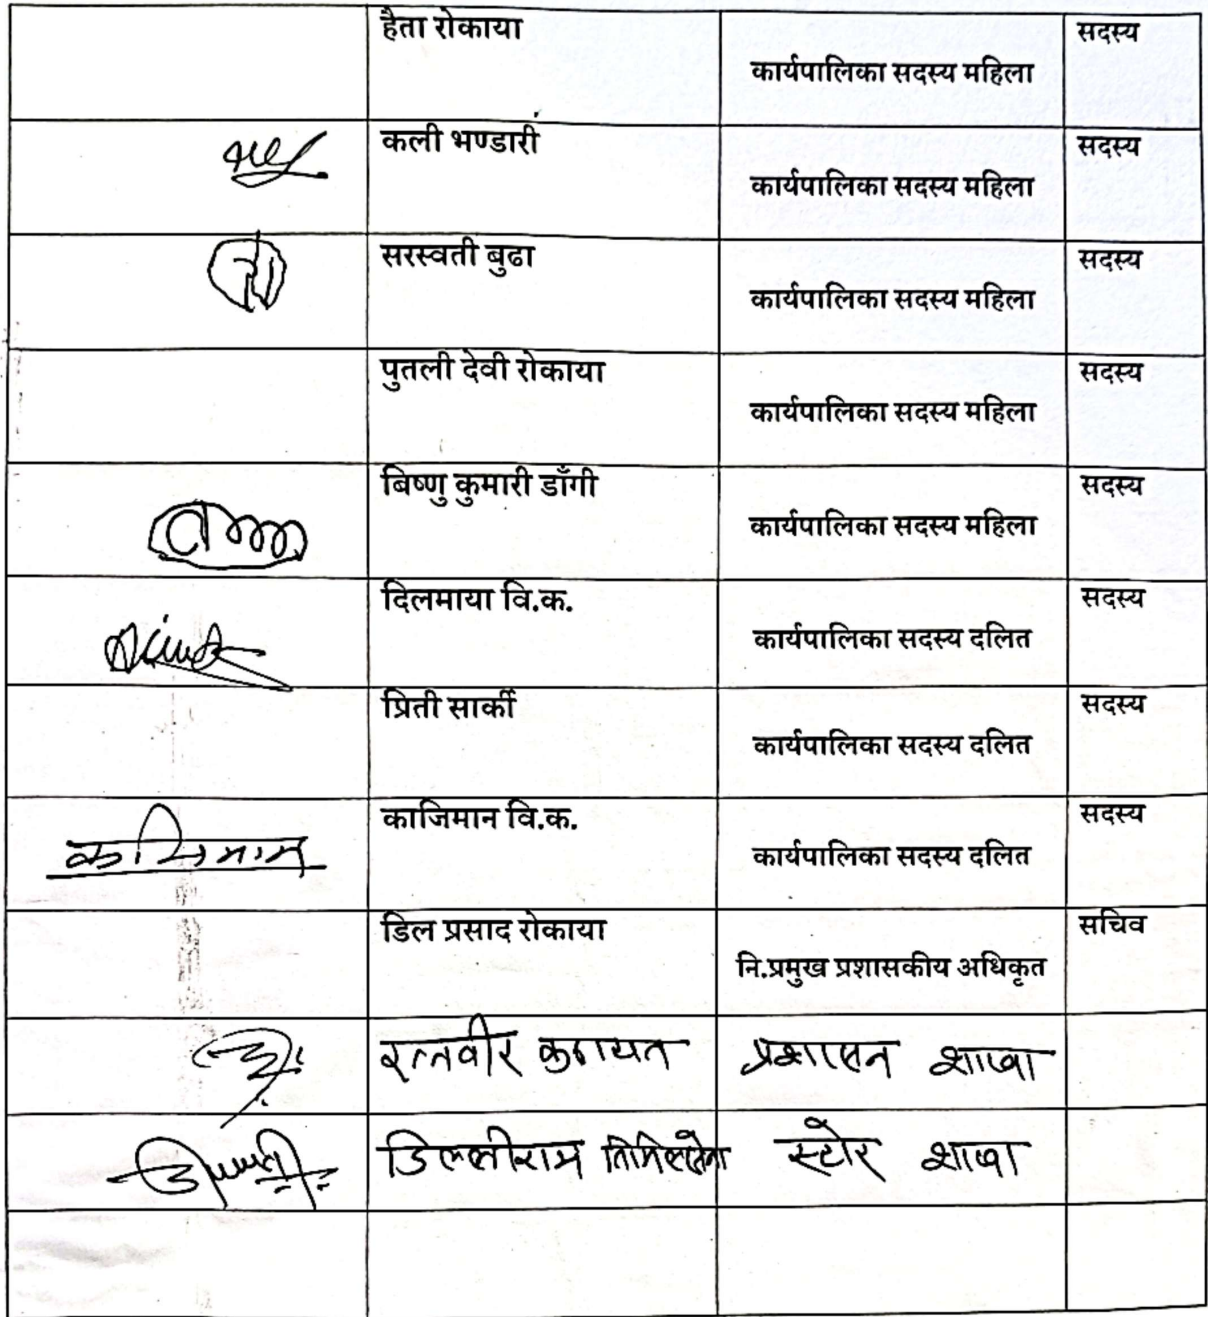 हैता रोकाया
कार्यपालिका सदस्य महिला
सदस्य
कली भण्डारी
कार्यपालिका सदस्य महिला
सदस्य
सरस्वती बुढा
कार्यपालिका सदस्य महिला
सदस्य
पुतली देवी रोकाया
कार्यपालिका सदस्य महिला
सदस्य
बिष्णु कुमारी डाँगी
कार्यपालिका सदस्य महिला
सदस्य
दिलमाया वि.क.
कार्यपालिका सदस्य दलित
सदस्य
प्रिती सार्की
कार्यपालिका सदस्य दलित
सदस्य
काजिमान वि.क.
कार्यपालिका सदस्य दलित
सदस्य
डिल प्रसाद रोकाया
नि.प्रमुख प्रशासकीय अधिकृत
सचिव
रत्नवीर कठायत प्रशासन शाखा
डिल्लीराम तिमिल्सेना स्टोर शाखा